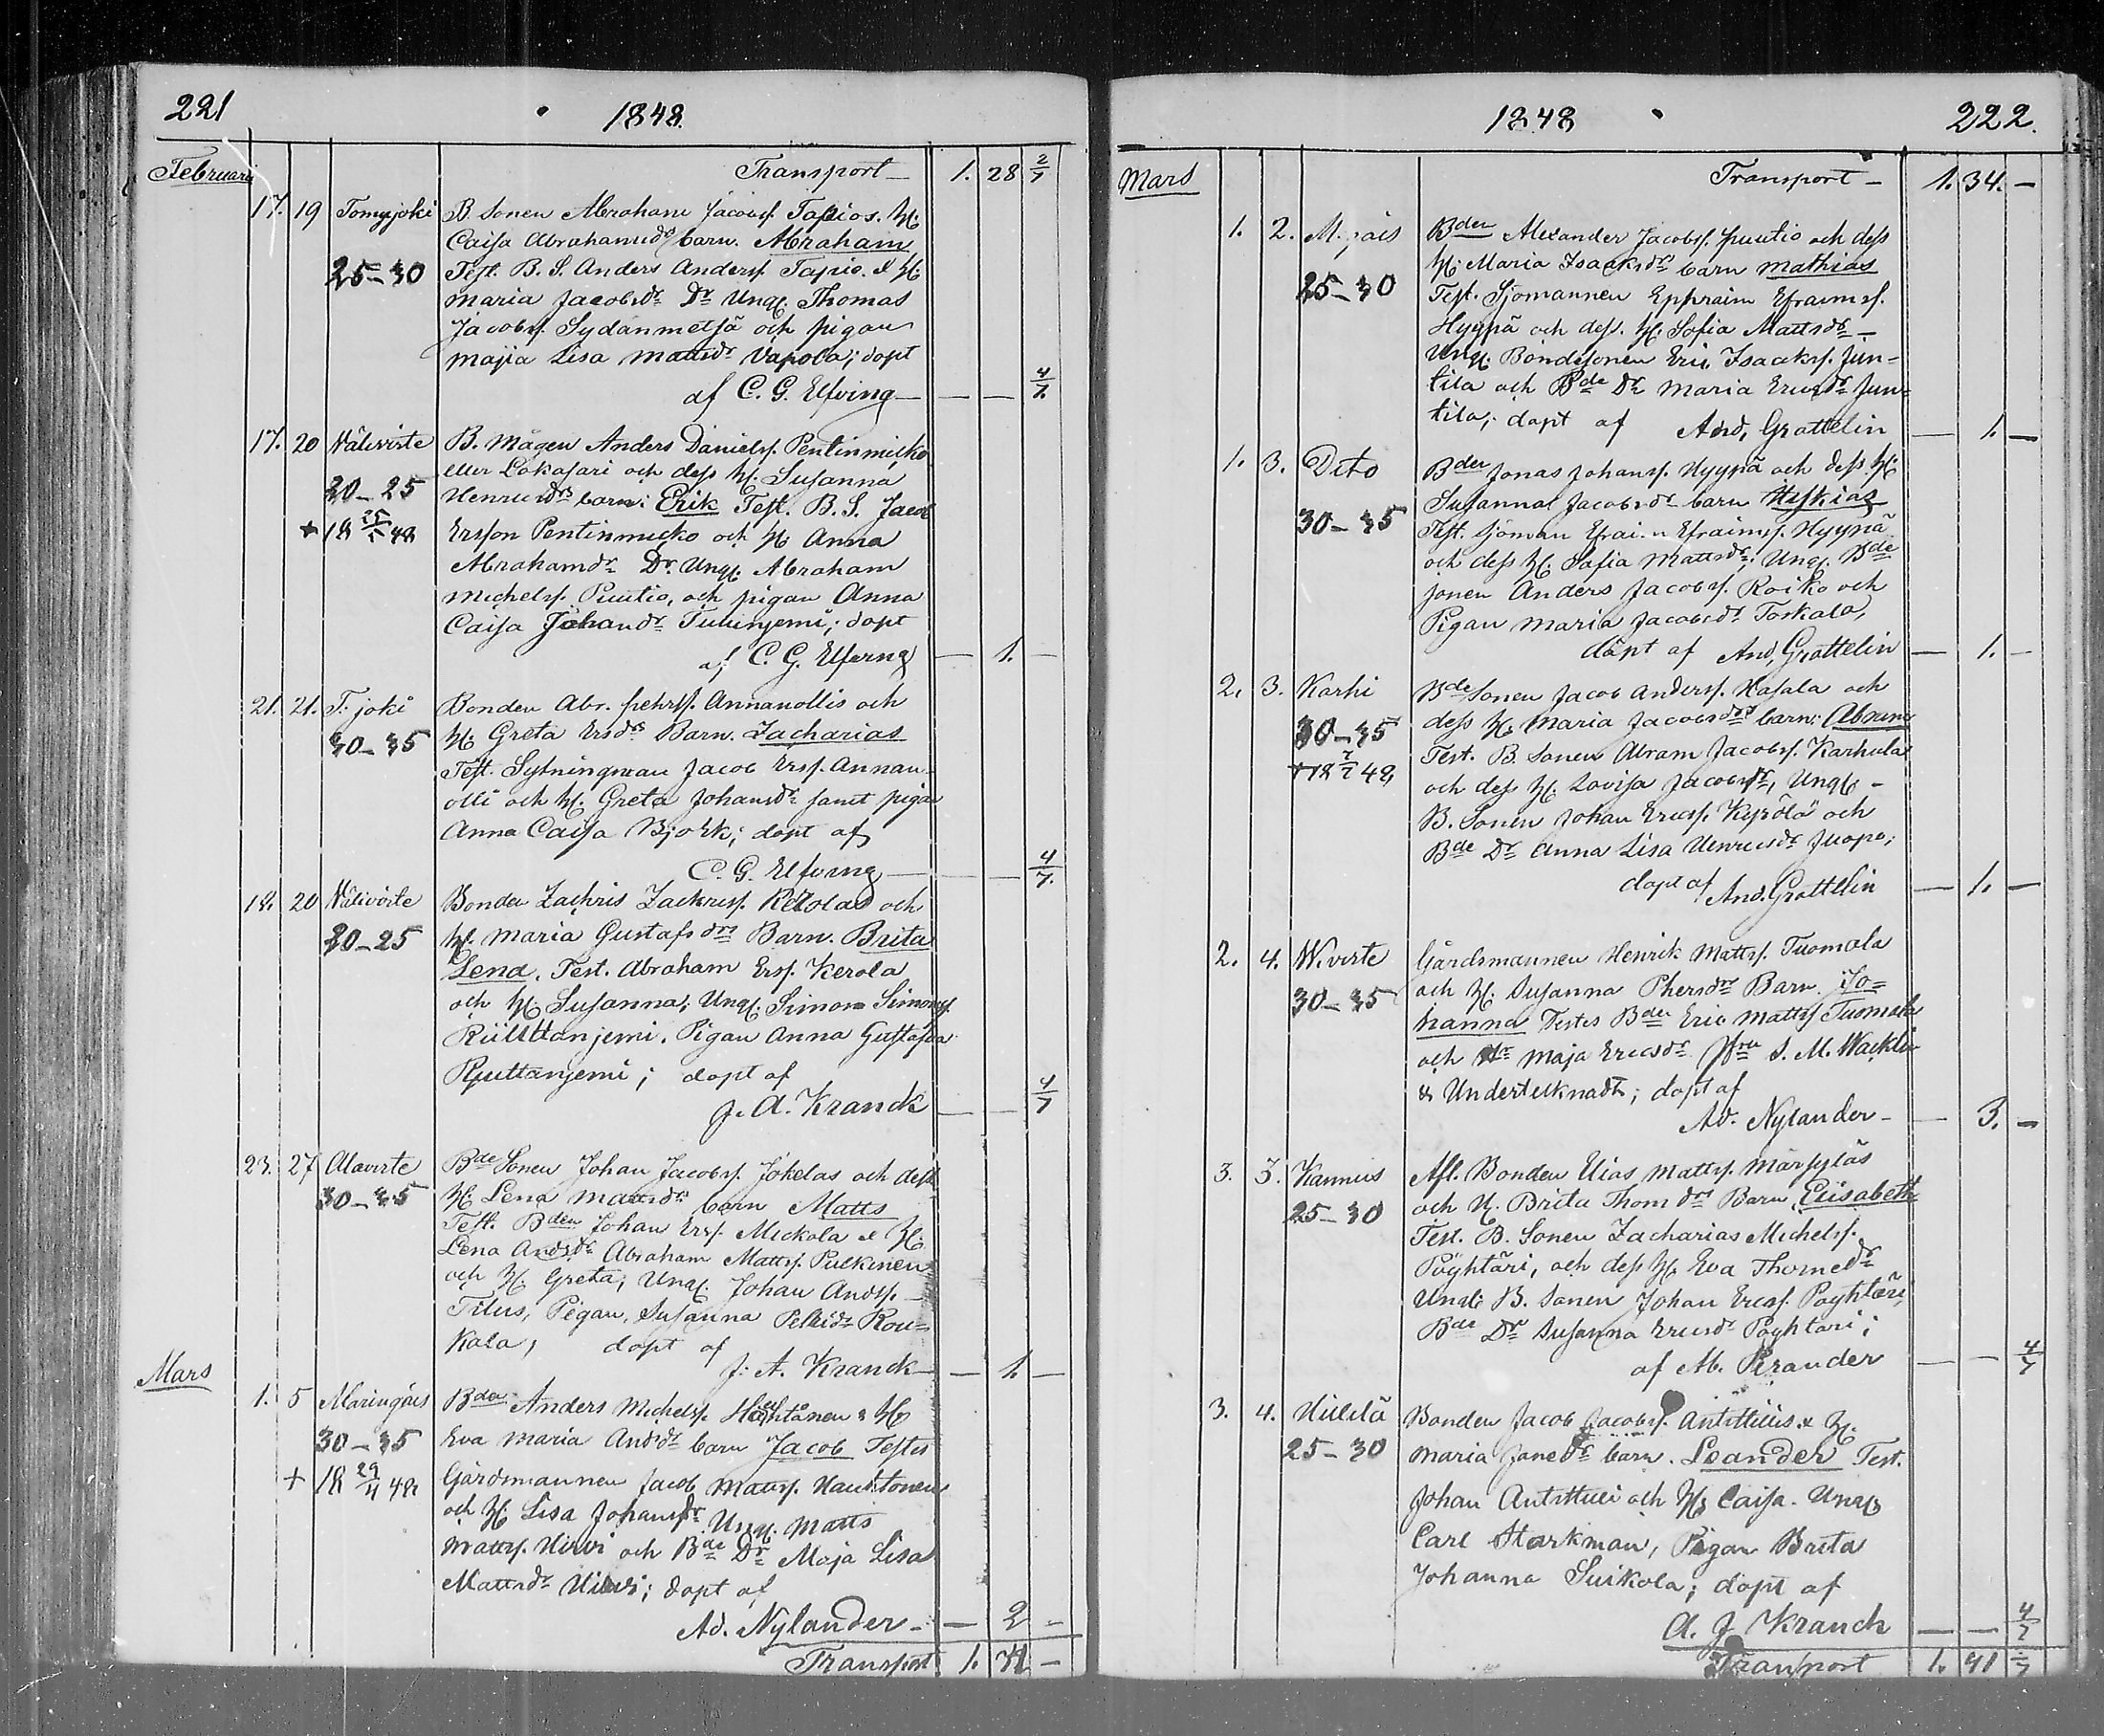 221
1848
Februari
Transport 1. 28 2/7
17. 19 Tomujoki B. Sonen Abraham Jacobsf. Tapios. H:
Caisa Abrahamsdr barn. Abraham
25-30 Test. B. S. Anders Andersf. Tapio & H:
Maria Jacobsdr Dr Ungl. Thomas
Jacobsf. Sydänmetsä och pigan
Majia Lisa Mattsdr Vapola; döpt
af C. G. Elfving — — 4/7
17. 20 Wälivirte B. Mågen Anders Danielsf. Pentinmicko
eller Lokasari och dess H. Susanna
20-25 Henricsdrs barn: Erik Test. B. S. Jacob
+ 18 48 Ersson Pentinmicko och H: Anna
Abrahamdr Dr. Ungl: Abraham
Michelsf. Puutio, och pigan Anna
Caisa Johansdr döpt
af C. G. Elfving — 1. —
21. 21. T. joki Bonden Abr. Pehrsf. Annanollis och
30-35 H: Greta Ersdrs Barn. Zacharias
Test. Sytningman Jacob Ersf. Annan-
olli och H. Greta Johansdr samt pigan
Anna Caisa Björk; döpt af
C. G. Elfving — — 4/7.
18. 20 Wälivirte Bonden Zachris Zachrisf. och
20-25 H. Maria Gustafsdrs Barn. Brita
Lena. Test. Abraham Ersf. Kerola
och H: Susanna, Ungl: Simon Simonsf.
Pigan Anna Gustafsdr
döpt af
J. A. Kranck — — 4/7
23. 27 Alavirte Bde Sonen Johan Jacobsf. Jokelas och dess
30-35 H: Lena Mattsdr barn Matts
Test. Bden Johan Ersf. Mickola & H:
Lena Andsdr Abraham Mattsf. Pulkinen
och H. Greta, Ungl. Johan Andsf.
Titus, Pigan, Susanna Rou=
kala, döpt af
J. A. Kranck — 1. —
Mars
1. 5 Maringais Bden Anders Michelsf. & H:
30-35 Eva Maria Andsdr barn Jacob Testes
+ 18 29/4 48 Gårdsmannen Jacob Mattsf.
och H: Lisa Johansdr. Ungl. Matts
Mattsf. Hirvi och Bde Dr Maja Lisa
Mattsdr Hirvi; döpt af
Ad. Nylander — 2 —
Transport 1. 34 —
1848
222.
Mars
Transport — 1. 34. —
1. 2. Bden Alexander Jacobsf. Puutio och dess
H: Maria Isaaksdrs barn Mathias
25-30 Test. Sjömannen Ephraim Efraimsf.
Hyypä och dess. H. Sofia Mattsdr —
Ungl. Bondesonen Eric Isaaksf. Jun-
tila och Bde Dr Maria Ericsdr Jun-
tila; döpt af And. Grattelin — 1. —
1. 3. Dito Bden Jonas Johansf. Hyypä och dess H:
Susanna Jacobsdr barn Hiskias
30-35 Test. Sjöman Efraim Efraimsf. Hyypä
och dess H: Sofia Mattsdr. Ungl. Bde
sonen Anders Jacobsf. Roiko och
Pigan Maria Jacobsdr Torkala,
döpt af And. Grattelin — 1. —
2. 3. Karhi Bde Sonen Jacob Andersf. Hasala och
dess H: Maria Jacobsdrs barn: Abram
30-35 Test. B. Sonen Abram Jacobsf. Karhula
+18 7/7 48 och dess H: Lovisa Jacobsdr, Ungl —
B. Sonen Johan Ericsf. och
Bde Dr Anna Lisa Henricsdr Juopo;
döpt af And. Grattelin — 1. —
2. 4. W. virte Gårdsmannen Henrik Mattsf. Tuomala
och H: Susanna Phersdrs Barn. Jo=
30-35 hanna Testes Bden Eric Mattsf Tuomala
och Maja Ericsdr S. M. Wacklin
& Undertecknadt; döpt af
Ad. Nylander — — 3. —
3. 3. Kannus Afl. Bonden Elias Mattsf. Märsyläs
25-30 och H. Brita Thomdrs Barn, Elisabeth
Test. B. Sonen Zacharias Michelsf.
Pöyhtäri, och dess H: Eva Thomedr
Ungl: B. Sonen Johan Ericsf. Pöyhtäri,
Bde Dr Susanna Ericsdr Pöyhtäri;
af M. Perander — — 4/7
3. 4. Hillilä Bonden Jacob Jacobsf. Anttillis & H:
25-30 Maria Janedr barn. Leander Test.
Johan och H: Caisa. Ungl
Carl Starkman, Pigan Brita
Johanna Suikola; döpt af
A. J Kranck — — 4/7
Transport 1. 41